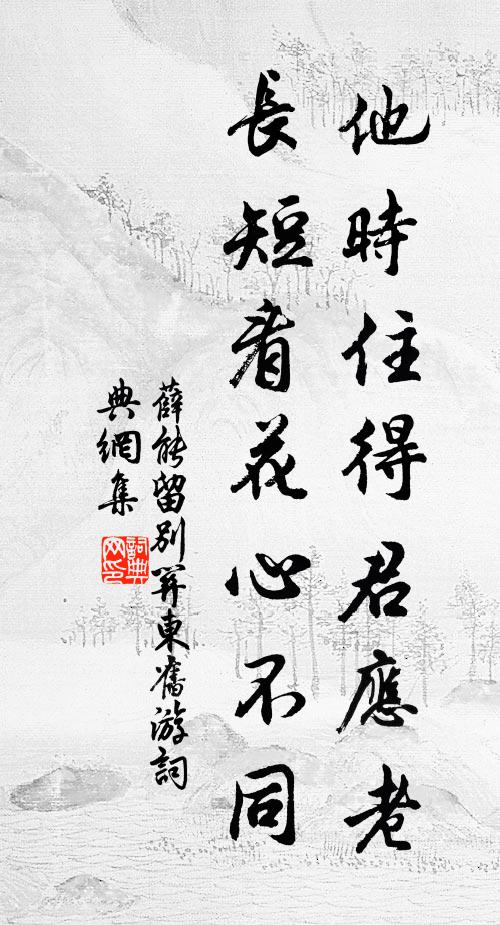 他時住得君應老
長短看花心不同
薛能留別關東舊游詞
典網集
詞典
网印